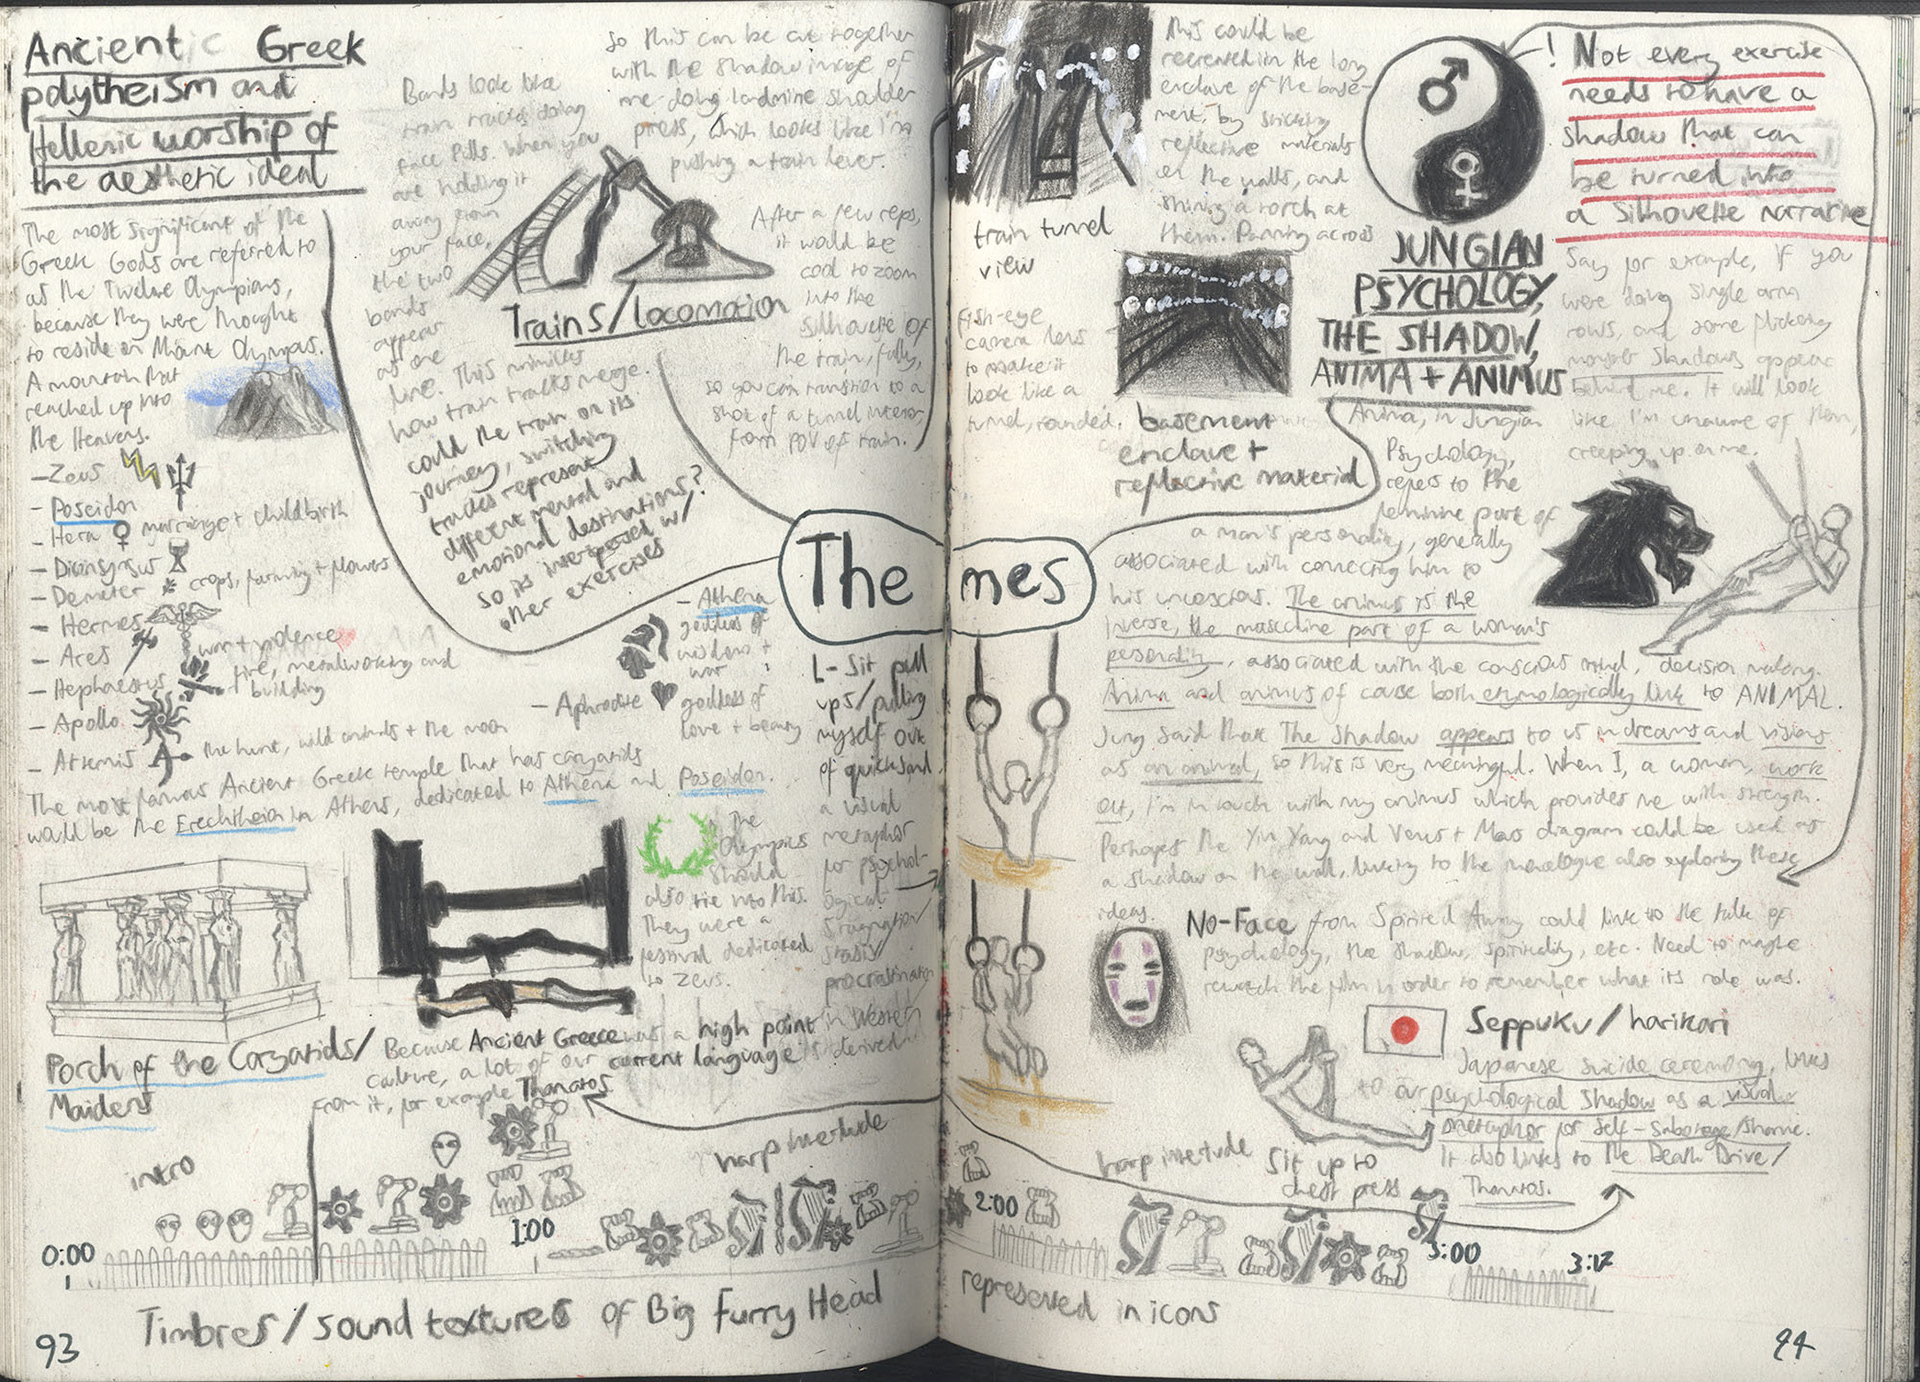 Ancientic Greek
polytheism and
Hellenic worship of
the aesthetic ideal
The most significant of the
Greek Gods are referred to
as the Twelve Olympians,
because they were thought
to reside on Mount Olympus.
A mountain that
reached up into
the Heavens.
- Zeus
- Poseidon
- Hera ♀ marriage + childbirth
- Dionysus
- Demeter crops, farming + flowers
- Hermes
- Ares war + violence
- Hephaestus fire, metalworking and
building
- Apollo
- Artemis the hunt, wild animals + the moon
- Aphrodite goddess of
love + beauty
- Athena
goddess of
wisdom +
war
The most famous Ancient Greek temple that has caryatids
would be the Erechtheion in Athens, dedicated to Athena and Poseidon.
Porch of the Caryatids/
Maidens
The
Olympics
should
also tie into this.
They were a
festival dedicated
to Zeus.
Because Ancient Greece was a high point in Western
culture, a lot of our current language is derived
from it, for example Thanatos
Bands look like
train tracks doing
face pulls. When you
are holding it
away from
your face,
the two
bands
appear
as one
line. This mimicks
how train tracks merge.
could the train on its
journey, switching
tracks represent
different mental and
emotional destinations?
so its interspersed w/
other exercises
so this can be cut together
with the shadow image of
me doing landmine shoulder
press, which looks like I'm
pushing a train lever.
Trains/locomotion
After a few reps,
it would be
cool to zoom
into the
silhouette of
the train, fully,
so you can transition to a
shot of a tunnel interior,
from POV of train.
The mes
L-Sit pull
ups/pulling
myself out
of quicksand.
a visual
metaphor
for psychol-
ogical
stagnation/
stasis/
procrastination
train tunnel
view
This could be
recreated in the long
enclave of the base-
ment, by sticking
reflective materials
on the walls, and
shining a torch at
them. Panning across
fish-eye
camera lens
to make it
look like a
tunnel, rounded.
basement
enclave +
reflective material
! Not every exercise
needs to have a
shadow that can
be turned into
a silhouette narrative
Say for example, if you
were doing single arm
rows, and some flickering
monster shadows appear
behind me. It will look
like I'm unaware of them,
creeping up on me.
JUNGIAN
PSYCHOLOGY,
THE SHADOW,
ANIMA + ANIMUS
Anima, in Jungian
Psychology,
refers to the
feminine part of
a man's personality, generally
associated with connecting him to
his unconscious. The animus is the
inverse, the masculine part of a woman's
personality, associated with the conscious mind, decision making.
Anima and animus of course both etymologically link to ANIMAL.
Jung said that The Shadow appears to us in dreams and visions
as an animal, so this is very meaningful. When I, a woman, work
out, I'm in touch with my animus which provides me with strength.
Perhaps the Yin Yang and Venus + Mars diagram could be used as
a shadow on the wall, linking to the monologue also exploring these
ideas.
No-Face from Spirited Away could link to the talk of
psychology, the shadow, spirituality, etc. Need to maybe
rewatch the film in order to remember what its role was.
Seppuku/harikari
Japanese suicide ceremony, links
to our psychological shadow as a visual
metaphor for self-sabotage/shame.
It also links to The Death Drive/
Thanatos.
Sit up to
chest press
intro
harp interlude
harp interlude
0:00
1:00
2:00
3:00
3:17
Timbres/sound textures of Big Furry Head
represented in icons
93
94